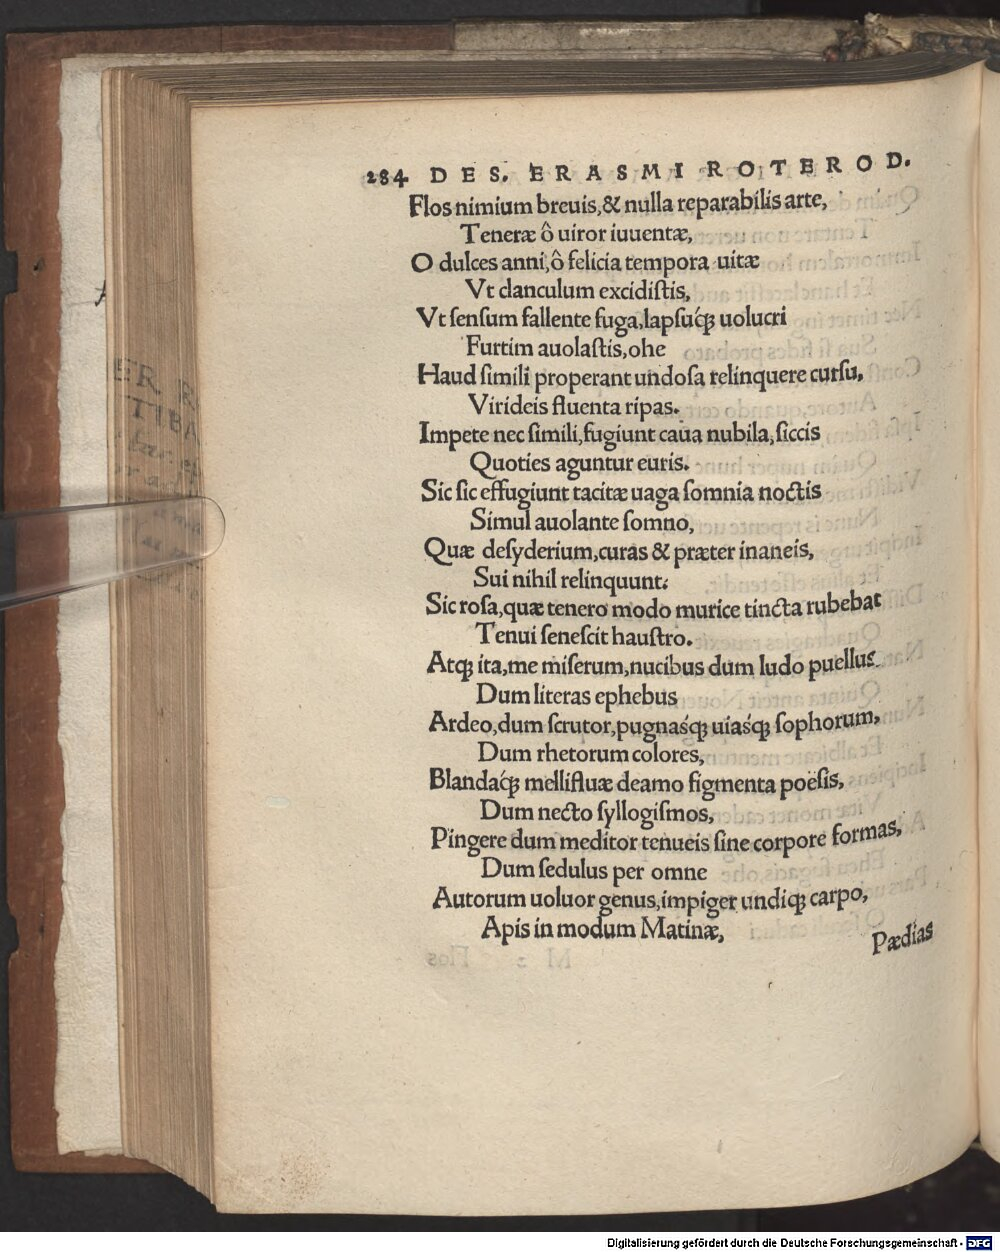 284 DES. ERASMI ROTEROD.
Flos nimium breuis,& nulla reparabilis arte,
Teneræ ô uiror iuuentæ,
O dulces anni,ô felicia tempora uitæ
Vt clanculum excidistis,
Vt sensum fallente fuga,lapsuq́ꝫ uolucri
Furtim auolastis,ohe
Haud simili properant undosa relinquere cursu,
Virideis fluenta ripas.
Impete nec simili,fugiunt caua nubila,siccis
Quoties aguntur euris.
Sic sic effugiunt tacitæ uaga somnia noctis
Simul auolante somno,
Quæ desyderium,curas & præter inaneis,
Sui nihil relinquunt:
Sic rosa,quæ tenero modo murice tincta rubebat
Tenui senescit haustro.
Atqꝫ ita,me miserum,nucibus dum ludo puellus
Dum literas ephebus
Ardeo,dum scrutor,pugnasq́ꝫ uiasq́ꝫ sophorum,
Dum rhetorum colores,
Blandaq́ꝫ mellifluæ deamo figmenta poësis,
Dum necto syllogismos,
Pingere dum meditor tenueis sine corpore formas,
Dum sedulus per omne
Autorum uoluor genus,impiger undiqꝫ carpo,
Apis in modum Matinæ,
Pædias
Digitalisierung gefördert durch die Deutsche Forschungsgemeinschaft - DFG